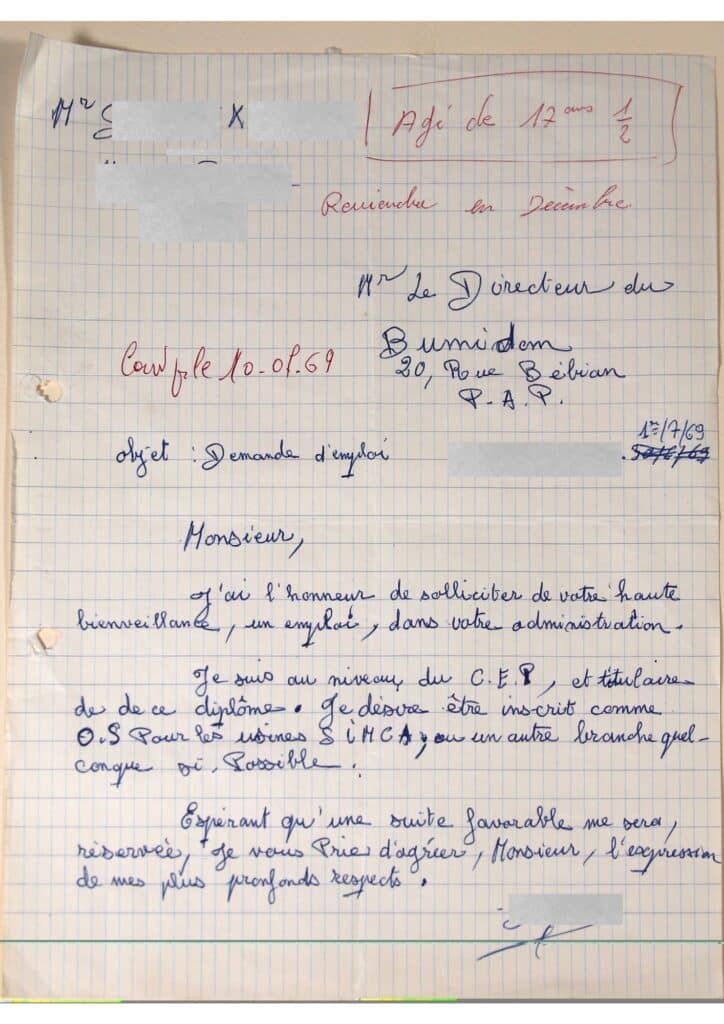 Mr X
Agé de 17 ans 1/2
Reviendra en Décembre
Mr Le Directeur du
Bumidom
20, Rue Bébian
P.A.P.
10-07.69
1er/7/69
objet : Demande d'emploi
Monsieur,
J'ai l'honneur de solliciter de votre haute
bienveillance, un emploi, dans votre administration.
Je suis au niveau du C.E.P, et titulaire
de de ce diplôme. Je désire être inscrit comme
O.S Pour les usines SIMCA, ou un autre branche quel-
conque si Possible.
Espérant qu'une suite favorable me sera,
réservée, Je vous Prie d'agréer, Monsieur, l'expression
de mes plus profonds respects.